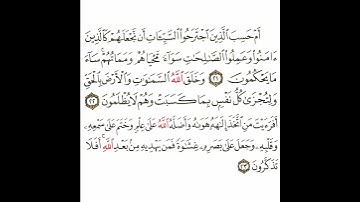 أَمْ حَسِبَ ٱلَّذِينَ ٱجْتَرَحُوا۟ ٱلسَّيِّـَٔاتِ أَن نَّجْعَلَهُمْ كَٱلَّذِينَ
ءَامَنُوا۟ وَعَمِلُوا۟ ٱلصَّـٰلِحَـٰتِ سَوَآءً مَّحْيَاهُمْ وَمَمَاتُهُمْ ۚ سَآءَ
مَا يَحْكُمُونَ ٢١ وَخَلَقَ ٱللَّهُ ٱلسَّمَـٰوَٰتِ وَٱلْأَرْضَ بِٱلْحَقِّ
وَلِتُجْزَىٰ كُلُّ نَفْسٍۭ بِمَا كَسَبَتْ وَهُمْ لَا يُظْلَمُونَ ٢٢
أَفَرَءَيْتَ مَنِ ٱتَّخَذَ إِلَـٰهَهُۥ هَوَىٰهُ وَأَضَلَّهُ ٱللَّهُ عَلَىٰ عِلْمٍ وَخَتَمَ عَلَىٰ سَمْعِهِۦ
وَقَلْبِهِۦ وَجَعَلَ عَلَىٰ بَصَرِهِۦ غِشَـٰوَةً فَمَن يَهْدِيهِ مِنۢ بَعْدِ ٱللَّهِ ۚ أَفَلَا
تَذَكَّرُونَ ٢٣